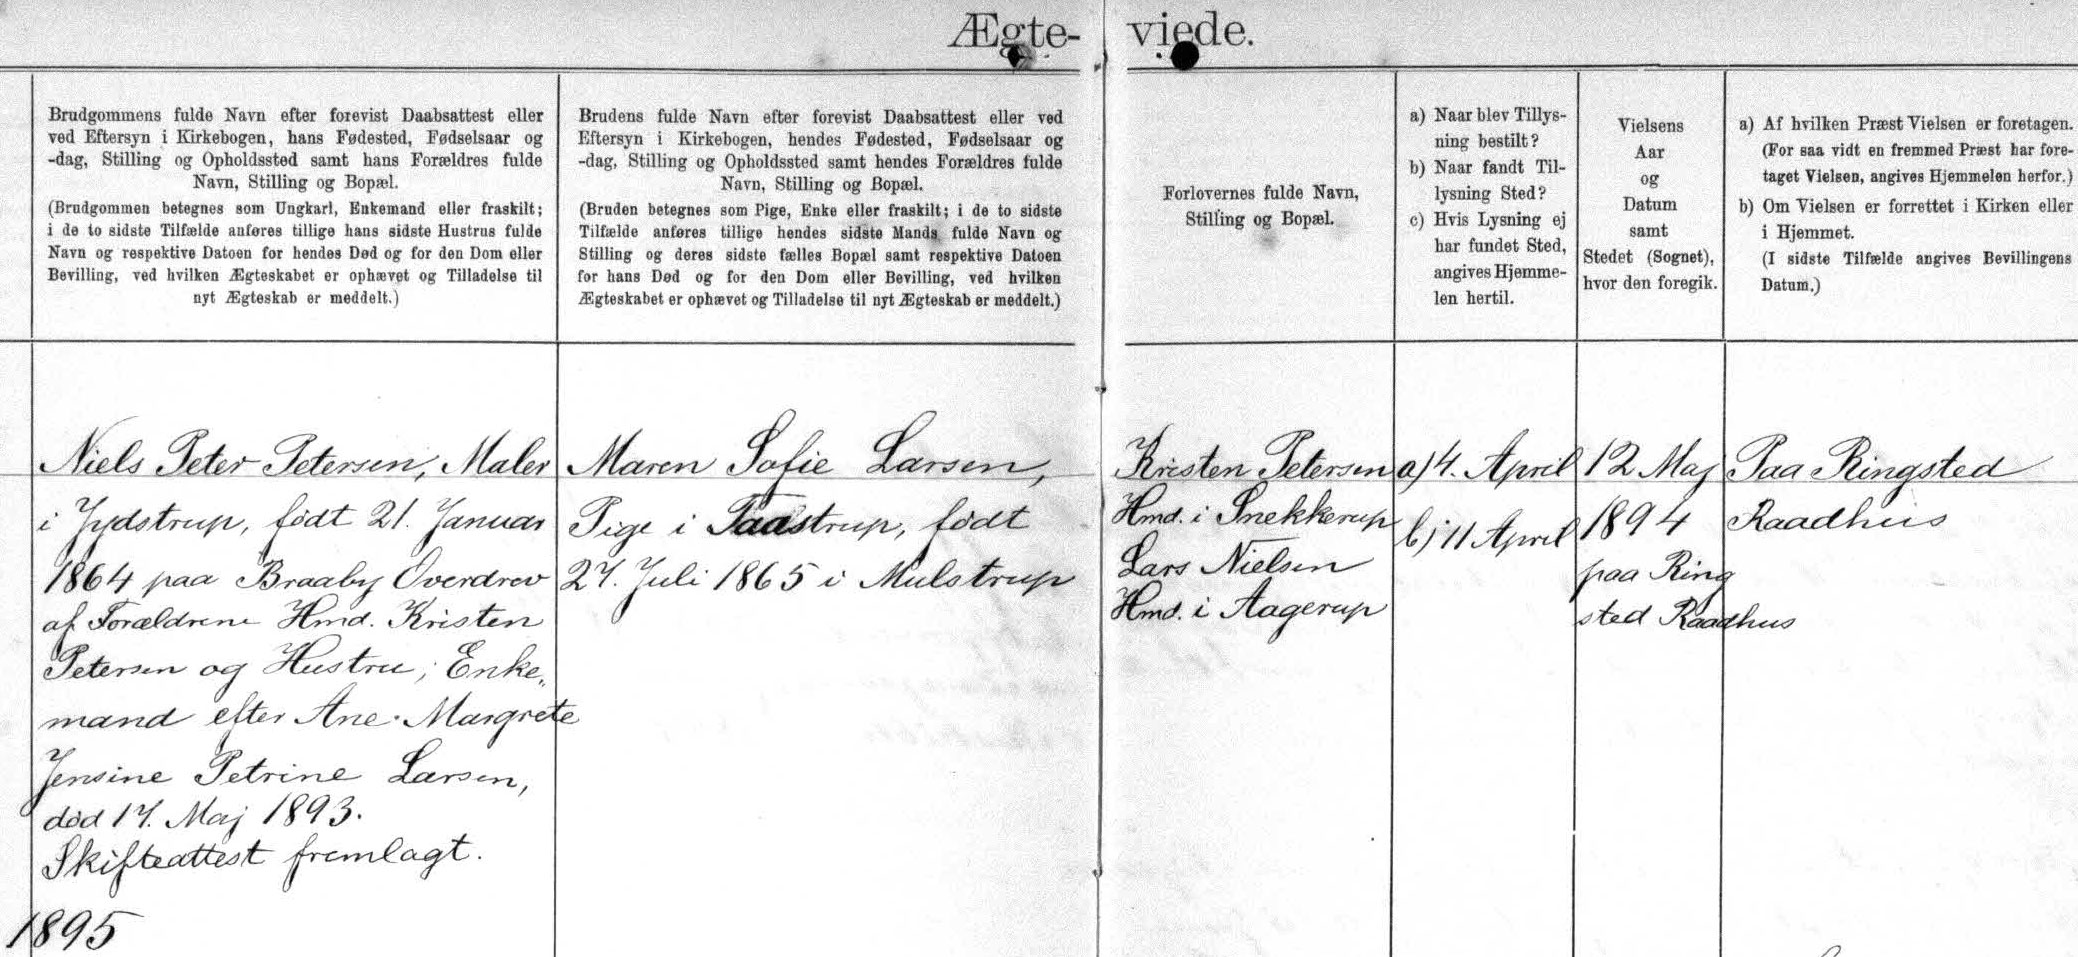 Ægte-viede.
Brudgommens fulde Navn efter forevist Daabsattest eller
ved Eftersyn i Kirkebogen, hans Fødested, Fødselsaar og
-dag, Stilling og Opholdssted samt hans Forældres fulde
Navn, Stilling og Bopæl.
(Brudgommen betegnes som Ungkarl, Enkemand eller fraskilt;
i de to sidste Tilfælde anføres tillige hans sidste Hustrus fulde
Navn og respektive Datoen for hendes Død og for den Dom eller
Bevilling, ved hvilken Ægteskabet er ophævet og Tilladelse til
nyt Ægteskab er meddelt.)
Brudens fulde Navn efter forevist Daabsattest eller ved
Eftersyn i Kirkebogen, hendes Fødested, Fødselsaar og
-dag, Stilling og Opholdssted samt hendes Forældres fulde
Navn, Stilling og Bopæl.
(Bruden betegnes som Pige, Enke eller fraskilt; i de to sidste
Tilfælde anføres tillige hendes sidste Mands fulde Navn og
Stilling og deres sidste fælles Bopæl samt respektive Datoen
for hans Død og for den Dom eller Bevilling, ved hvilken
Ægteskabet er ophævet og Tilladelse til nyt Ægteskab er meddelt.)
Forlovernes fulde Navn,
Stilling og Bopæl.
a) Naar blev Tillys-
ning bestilt?
b) Naar fandt Til-
lysning Sted?
c) Hvis Lysning ej
har fundet Sted,
angives Hjemme-
len hertil.
Vielsens
Aar
og
Datum
samt
Stedet (Sognet),
hvor den foregik.
a) Af hvilken Præst Vielsen er foretagen.
(For saa vidt en fremmed Præst har fore-
taget Vielsen, angives Hjemmelen herfor.)
b) Om Vielsen er forrettet i Kirken eller
i Hjemmet.
(I sidste Tilfælde angives Bevillingens
Datum.)
Niels Peter Petersen, Maler
i Jydstrup, født 21. Januar
1864 paa Braaby Overdrev
af Forældrene Hmd. Kristen
Petersen og Hustru; Enke-
mand efter Ane Margrete
Jensine Petrine Larsen,
død 17. Maj 1893.
Skifteattest fremlagt.
1895
Maren Sofie Larsen,
Pige i Taastrup, født
27. Juli 1865 i Mulstrup
Kristen Petersen
Hmd. i Snekkerup
Lars Nielsen
Hmd. i Aagerup
a) 4. April
b) 11 April
12 Maj
1894
paa Ring
sted Raadhus
Paa Ringsted
Raadhus